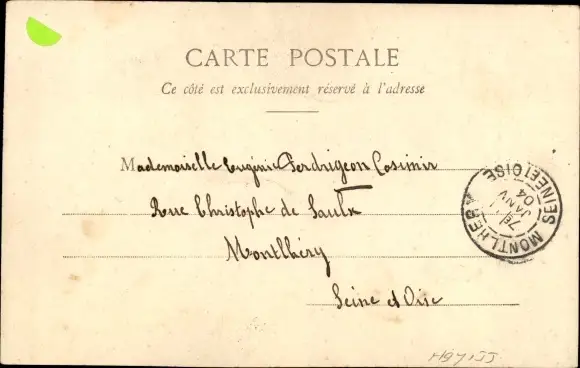 CARTE POSTALE
Ce côté est exclusivement réservé à l'adresse
Mademoiselle Eugénie Perdrigeon Casimir
Rue Christophe de Saulx
Montlhéry
Seine et Oise
MONTLHERY
SEINE ET OISE
JANV
04